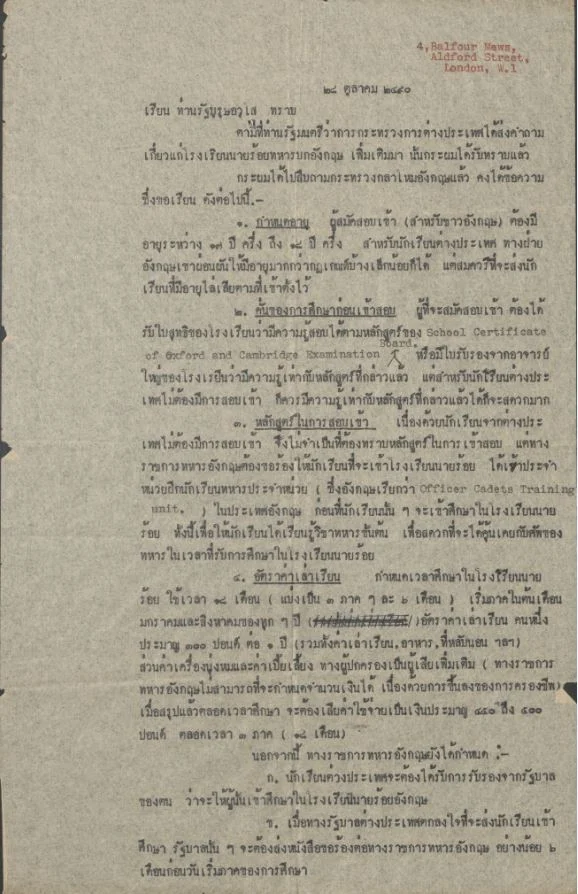 4, Balfour Mews,
Aldford Street,
London, W.1
๒๘ ตุลาคม ๒๔๙๐
เรียน ท่านรัฐบุรุษอาวุโส ทราบ
ตามที่ท่านรัฐมนตรีว่าการกระทรวงการต่างประเทศได้ส่งคำถาม
เกี่ยวแก่โรงเรียนนายร้อยทหารบกอังกฤษ เพิ่มเติมมา นั้นกระผมได้รับทราบแล้ว
กระผมได้ไปสืบถามกระทรวงกลาโหมอังกฤษแล้ว คงได้ข้อความ
ซึ่งขอเรียน ดังต่อไปนี้.–
๑. กำหนดอายุ ผู้สมัคสอบเข้า (สำหรับชาวอังกฤษ) ต้องมี
อายุระหว่าง ๑๗ ปี ครึ่ง ถึง ๑๘ ปี ครึ่ง สำหรับนักเรียนต่างประเทศ ทางฝ่าย
อังกฤษเขาผ่อนผันให้มีอายุมากกว่ากฎเกณฑ์บ้างเล็กน้อยก็ได้ แต่สมควรที่จะส่งนัก
เรียนที่มีอายุไล่เลียตามที่เข้าตั้งไว้
๒. คั่นของการศึกษาก่อนเข้าสอบ ผู้ที่จะสมัคสอบเข้า ต้องได้
รับใบสุทธิของโรงเรียนว่ามีความรู้สอบได้ตามหลักสูตร์ของ School Certificate
of Oxford and Cambridge Examination Board. หรือมีใบรับรองจากอาจารย์
ใหญ่ของโรงเรียนว่ามีความรู้เท่ากับหลักสูตร์ที่กล่าวแล้ว แต่สำหรับนักเรียนต่างประ
เทศไม่ต้องมีการสอบเข้า ก็ควรมีความรู้เท่ากับหลักสูตร์ที่กล่าวแล้วได้ก็จะสดวกมาก
๓. หลักสูตร์ในการสอบเข้า เนื่องด้วยนักเรียนจากต่างประ
เทศไม่ต้องมีการสอบเข้า จึงไม่จำเป็นที่ต้องทราบหลักสูตร์ในการเข้าสอบ แต่ทาง
ราชการทหารอังกฤษต้องขอร้องให้นักเรียนที่จะเข้าโรงเรียนนายร้อย ได้เข้าประจำ
หน่วยฝึกนักเรียนทหารประจำหน่วย ( ซึ่งอังกฤษเรียกว่า Officer Cadets Training
unit. ) ในประเทศอังกฤษ ก่อนที่นักเรียนนั้น ๆ จะเข้าศึกษาในโรงเรียนนาย
ร้อย ทั้งนี้เพื่อให้นักเรียนได้เรียนรู้วิชาทหารขั้นต้น เพื่อสดวกที่จะได้คุ้นเคยกับศัพของ
ทหารในเวลาที่รับการศึกษาในโรงเรียนนายร้อย
๔. อัตราค่าเล่าเรียน กำหนดเวลาศึกษาในโรงเรียนนาย
ร้อย ใช้เวลา ๑๘ เดือน ( แบ่งเป็น ๓ ภาค ๆ ละ ๖ เดือน ) เริ่มภาคในต้นเดือน
มกราคมและสิงหาคมของทุก ๆ ปี อัตราค่าเล่าเรียน คนหนึ่ง
ประมาณ ๓๐๐ ปอนด์ ต่อ ๑ ปี (รวมทั้งค่าเล่าเรียน,อาหาร,ที่หลับนอน ฯลฯ)
ส่วนค่าเครื่องนุ่งหมและค่าเบี้ยเลี้ยง ทางผู้ปกครองเป็นผู้เสียเพิ่มเติม ( ทางราชการ
ทหารอังกฤษไม่สามารถที่จะกำหนดจำนวนเงินได้ เนื่องด้วยการขึ้นลงของการครองชีพ)
เมื่อสรุปแล้วตลอดเวลาศึกษา จะต้องเสียค่าใช้จ่ายเป็นเงินประมาณ ๔๕๐ ถึง ๕๐๐
ปอนด์ ตลอดเวลา ๓ ภาค ( ๑๘ เดือน)
นอกจากนี้ ทางราชการทหารอังกฤษยังได้กำหนด :–
ก. นักเรียนต่างประเทศจะต้องได้รับการรับรองจากรัฐบาล
ของตน ว่าจะให้ผู้นั้นเข้าศึกษาในโรงเรียนนายร้อยอังกฤษ
ข. เมื่อทางรัฐบาลต่างประเทศตกลงใจที่จะส่งนักเรียนเข้า
ศึกษา รัฐบาลนั้น ๆ จะต้องส่งหนังสือขอร้องต่อทางราชการทหารอังกฤษ อย่างน้อย ๖
เดือนก่อนวันเริ่มภาคของการศึกษา